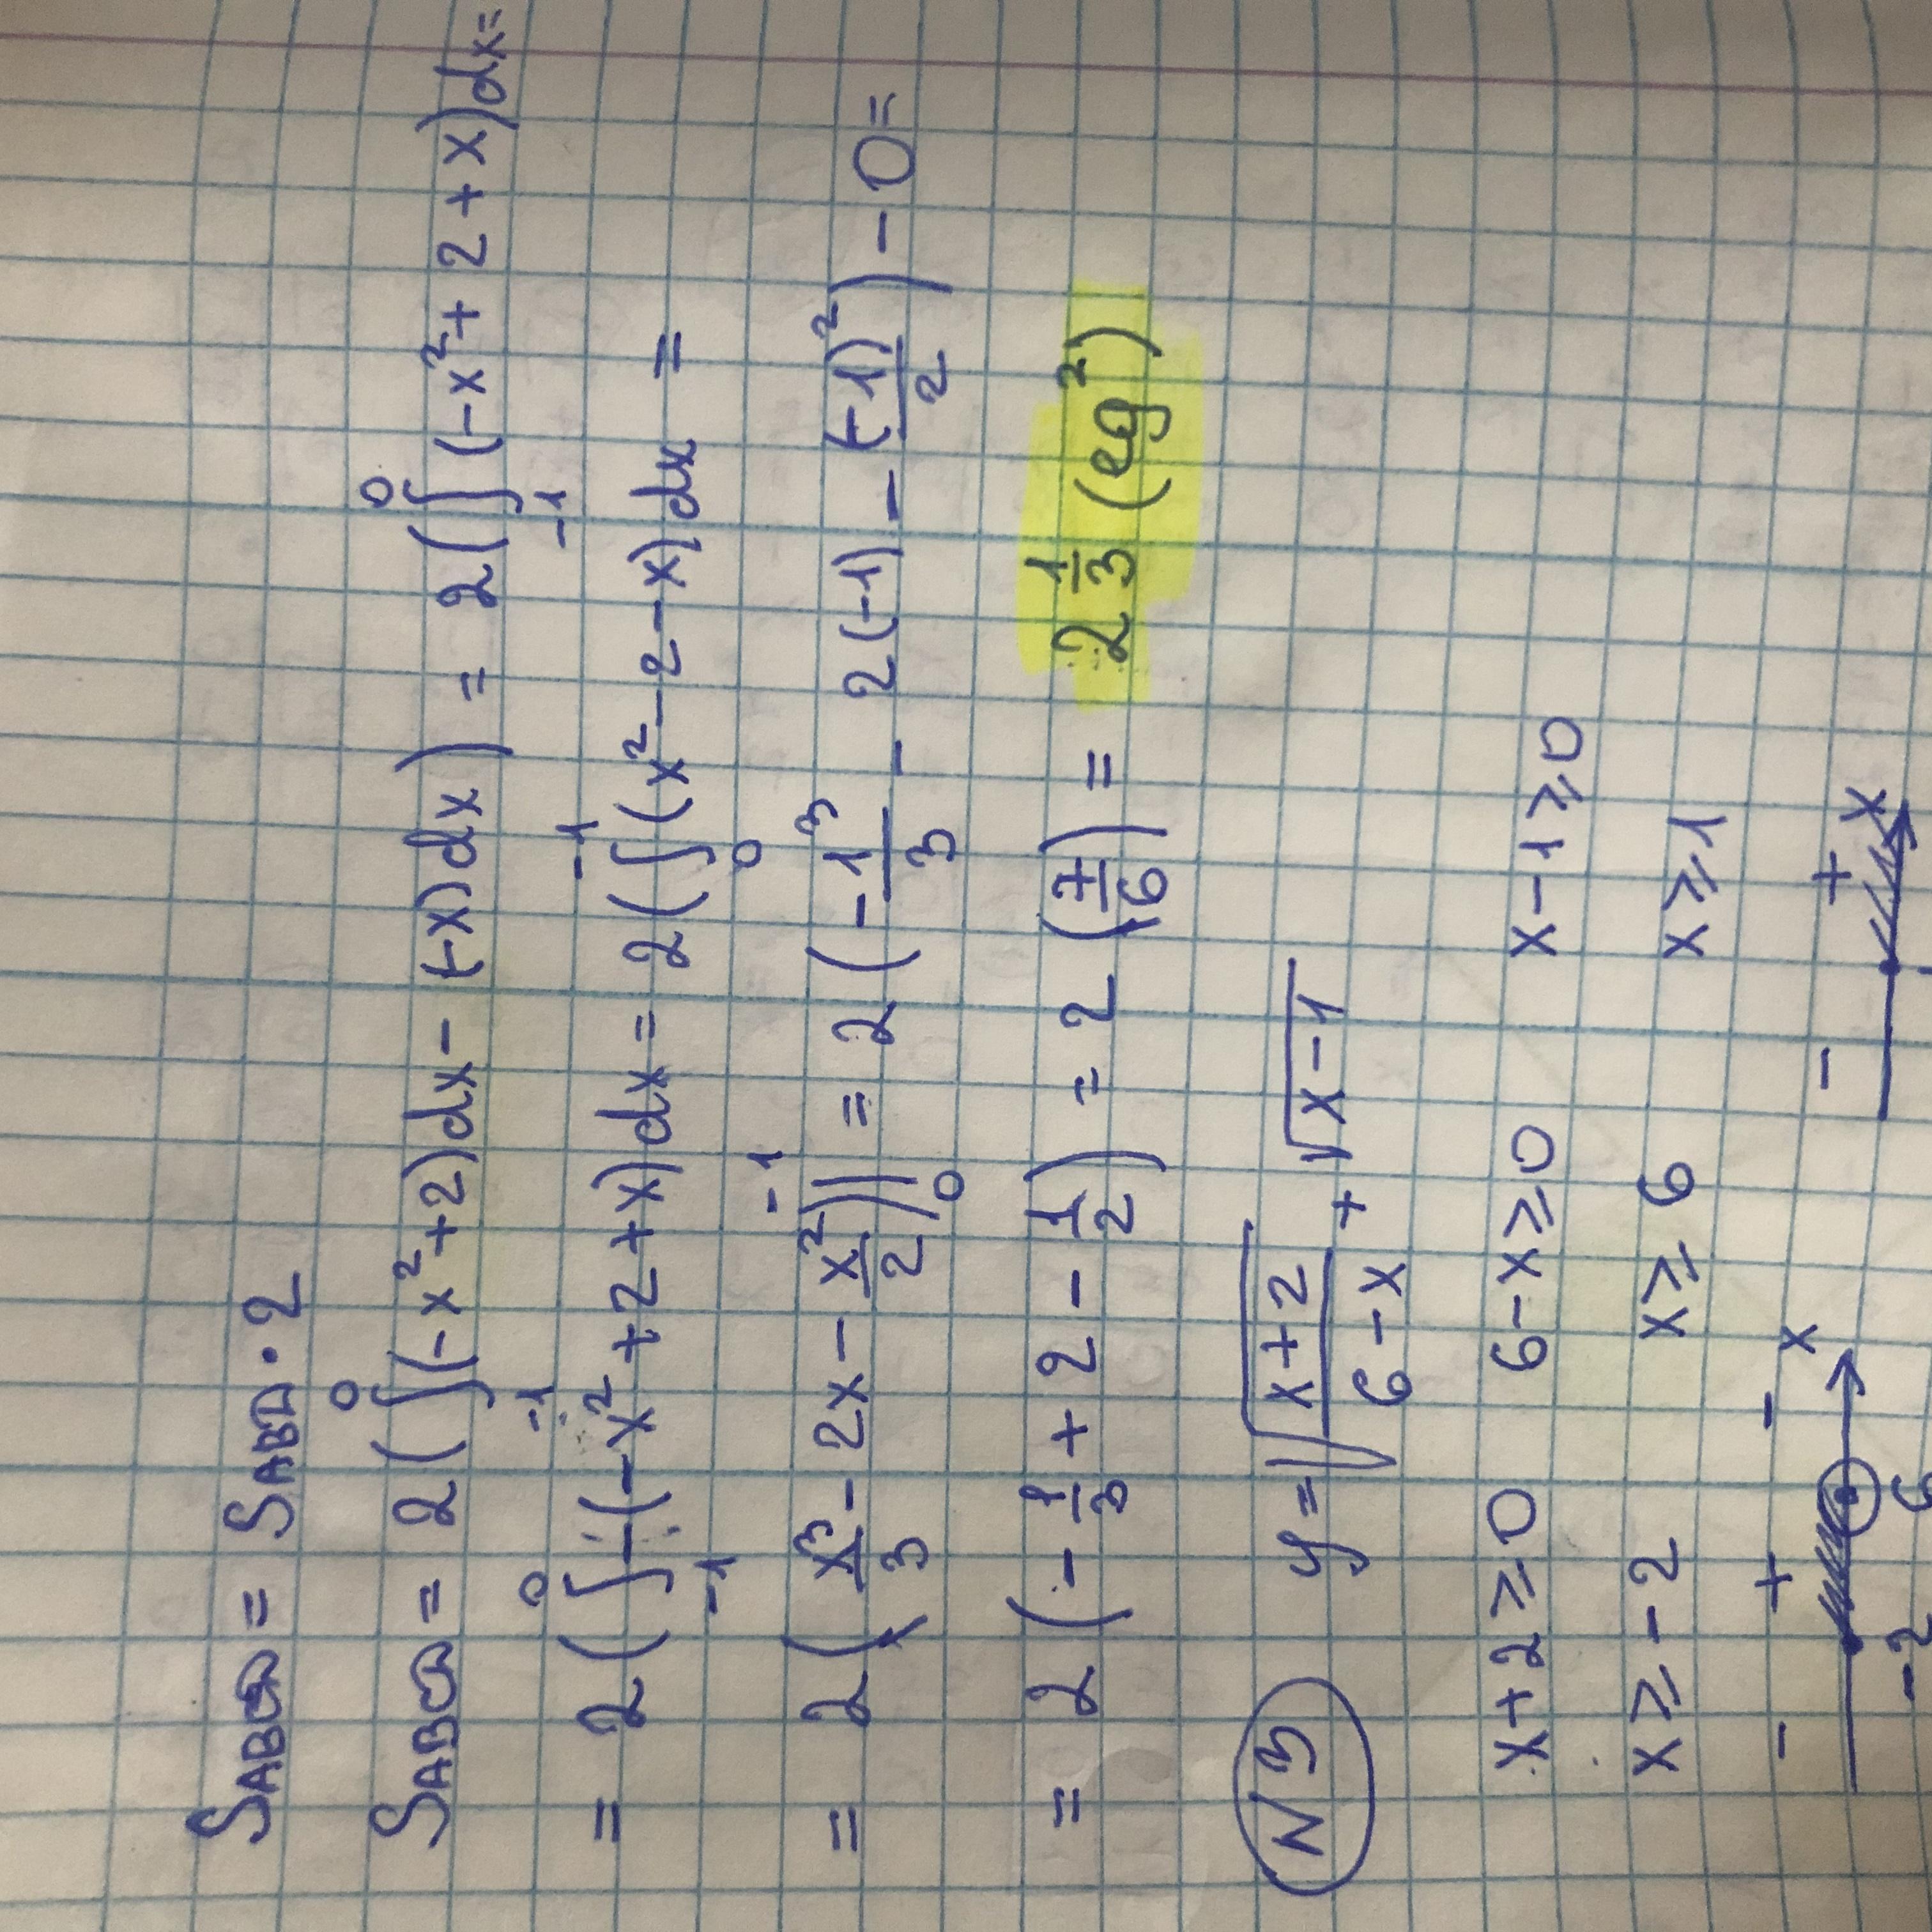 S_ABCD = S_ABD · 2
S_ABCD = 2(∫_{-1}^{0}(-x²+2)dx - (-x)dx) = 2(∫_{-1}^{0}(-x²+2+x)dx =
= 2(∫_{-1}^{0}-(-x²+2+x)dx = 2(∫_{0}^{-1}(x²-2-x)dx =
= 2(x³/3 - 2x - x²/2)|_{0}^{-1} = 2(-1³/3 - 2(-1) - (-1)²/2) - 0 =
= 2(-1/3 + 2 - 1/2) = 2(7/6) = 2 1/3 (eg²)
N3 y = √((x+2)/(6-x)) + √(x-1)
x+2 ≥ 0 6-x ≥ 0 x-1 ≥ 0
x ≥ -2 x ≥ 6 x ≥ 1
- + - x - + x
-2 6